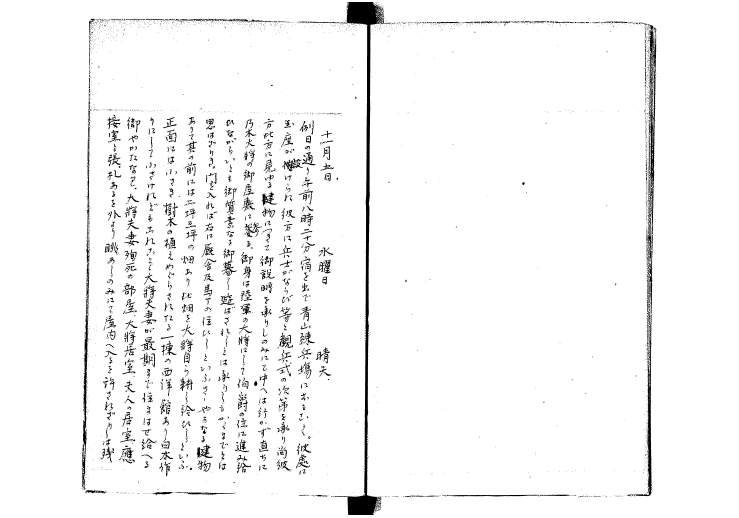 十一月五日、　水曜日　晴天、
例日の通り午前八時二十分宿を出で青山練兵場におもむく。彼處に
玉座が設けられ彼方に兵士がならび等と観兵式の次第を承り尚彼
方此方に見ゆる建物につきて御説明を承りしのみにて中へは行かず直ちに
乃木大将の御屋敷に参る。御身は陸軍の大将にして伯爵の位に進み給
ひながらいとも御質素なる御暮し遊ばされしとは承りしもかくまでとは
思はざりき。門を入れば右は厩舎及馬丁の住ひしといふさゝやかなる建物
ありて其の前には二坪三坪の畑あり此畑を大将自ら耕し給ひしといふ。
正面には小さき樹木の植えめぐらされたる一棟の西洋館あり白木作
りにして小さけれどもこれこそ大将夫妻が最期まで住まはせ給へる
御やかたなれ、大将夫妻殉死の部屋、大将居室、夫人の居室、應
接室と張札あるを外より眺めしのみにて屋内へ入るを許されざりしは残